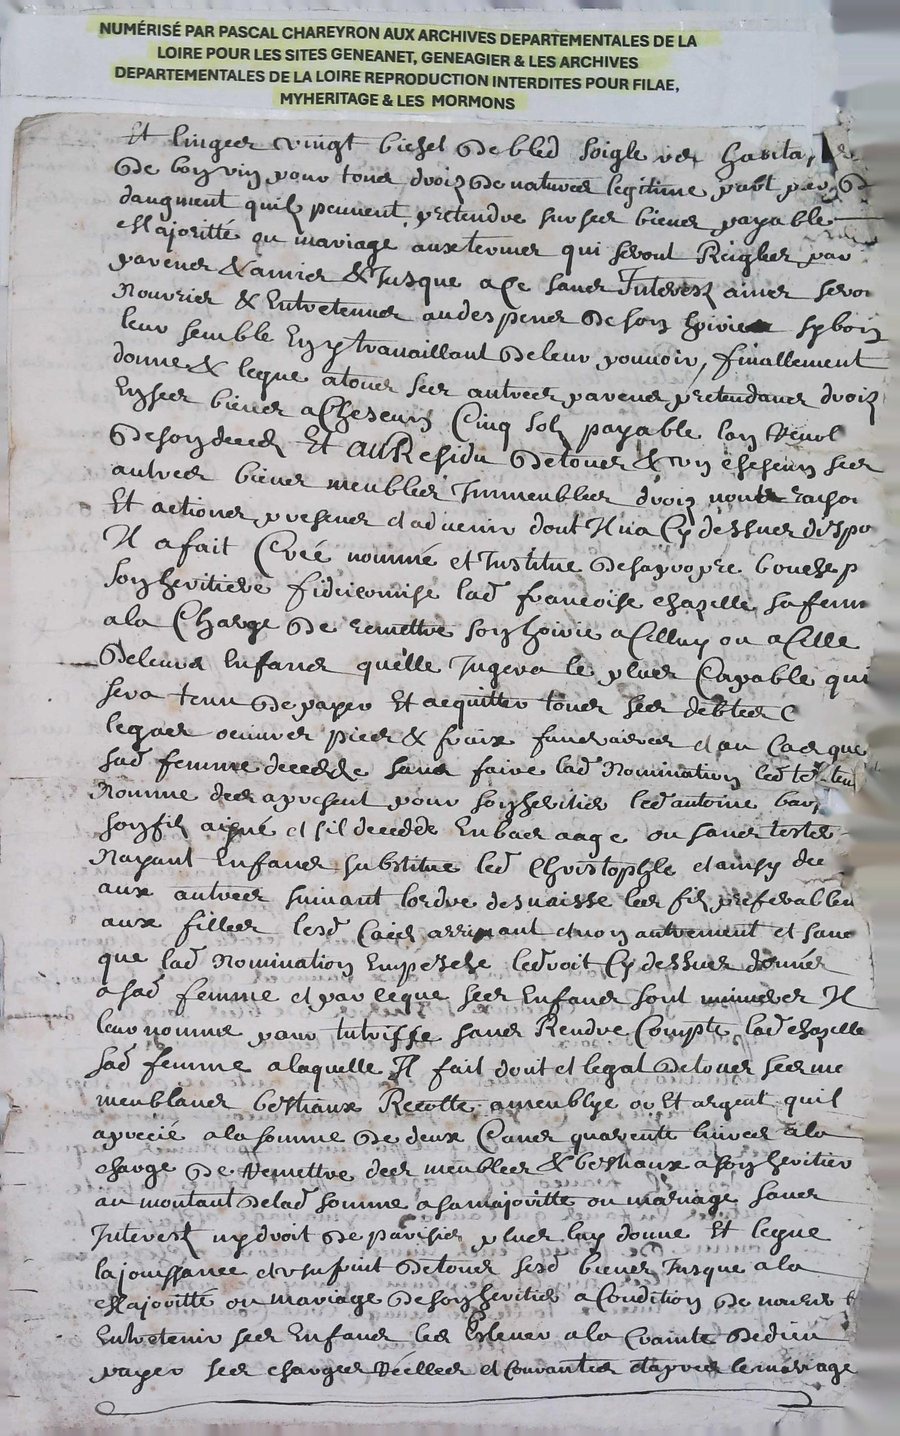 NUMÉRISÉ PAR PASCAL CHAREYRON AUX ARCHIVES DEPARTEMENTALES DE LA
LOIRE POUR LES SITES GENEANET, GENEAGIER & LES ARCHIVES
DEPARTEMENTALES DE LA LOIRE REPRODUCTION INTERDITES POUR FILAE,
MYHERITAGE & LES MORMONS
Et linges vingt bichet de bled soigle
de bon vin pour tous droiz de nature legitime part
daugment quilz peuvent pretendre sur ses biens payable
Majoritté ou mariage aux termes qui seront Reigles par
parens & amies & Jusque a ce sans Interest ains seron
Nourries & Entretenues au despens de son hoirie sy bon
leur semble En y travaillant de leur pouvoir, finallement
donne & legue a tous ses autres parens pretendans droiz
En ses biens a Chescung Cinq solz payable lan Revol
de son deced Et AU Residu de tous & un chescung ses
autres biens meubles Immeubles droiz noms raison
Et actions presens et advenir dont Il na Cy dessus dispo
Il a fait Créé nommé et Institue de sa propre bouche
son heritiere fideicomise lad francoise chazelle sa fem
a la Charge de remettre son hoirie a Celluy ou a Celle
de leurs Enfans quelle Jugera le plus Capable qui
sera tenu de payer Et acquitter tous ses debtes
legas oeuvres pies & fraix funeraires et au Cas que
sad femme decedde sans faire lad Nomination led
Nomme des a present pour son heritier led antoine
son filz aigné et sil decedde En bas aage ou sans tester
Nayant Enfans substitue led Christophle et ainsy de
aux autres suivant lordre de naisse les filz preferables
aux filles lesd Cas arrivant et non autrement et sans
que lad Nomination Empesche led droit Cy dessus donné
a sad femme et par ceque ses Enfans sont mineurs Il
leur nomme pour tutrisse sans Rendre Compte lad chazelle
sad femme a laquelle Il fait don et legat de tous ses
meublans bestiaux Recolte or Et argent quil
aprecié a la somme de deux Cens quarente livres a la
charge de Remettre des meubles & bestiaux a son heritier
au montant de lad somme a sa majoritte ou mariage sans
Interest ny droit de plus luy donne Et legue
la jouissance et usufruit de tous sesd biens Jusque a la
Majoritté ou mariage de son heritier a Condition de nourir
Entretenir ses Enfans les Eslever a la Crainte de dieu
payer ses charges Réelles et Courantes et apres le mariage